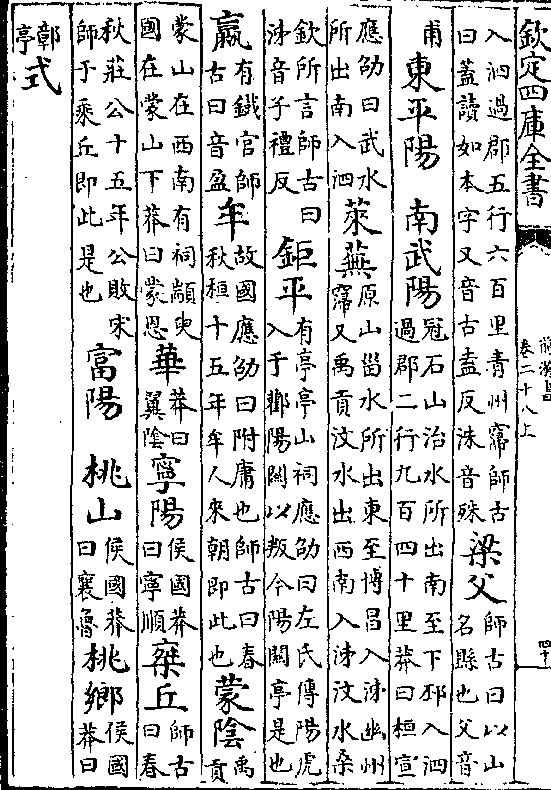 欽定四庫全書
卷二十八上
入泗過郡五行六百里青州寖師古
曰蓋讀如本字又音古盍反洙音殊
梁父
師古曰以山
名縣也父音
甫
東平陽
南武陽
冠石山治水所出南至下邳入泗
過郡二行九百四十里莽曰桓宣
應劭曰武水
所出南入泗
萊蕪
原山甾水所出東至博昌入泲幽州
寖又禹貢汶水出西南入泲汶水桑
欽所言師古曰
泲音子禮反
鉅平
有亭亭山祠應劭曰左氏傳陽虎
入于讙陽關以叛今陽關亭是也
嬴
有鐵官師
古曰音盈
牟
故國應劭曰附庸也師古曰春
秋桓十五年牟人來朝即此也
蒙陰
禹
貢
蒙山在西南有祠顓臾
國在蒙山下莽曰蒙恩
華
莽曰
翼陰
寧陽
侯國莽
曰寧順
椉丘
師古
曰春
秋莊公十五年公敗宋
師于乘丘即此是也
富陽
桃山
侯國莽
曰襃魯
桃鄉
侯國
莽曰
鄣
亭
式